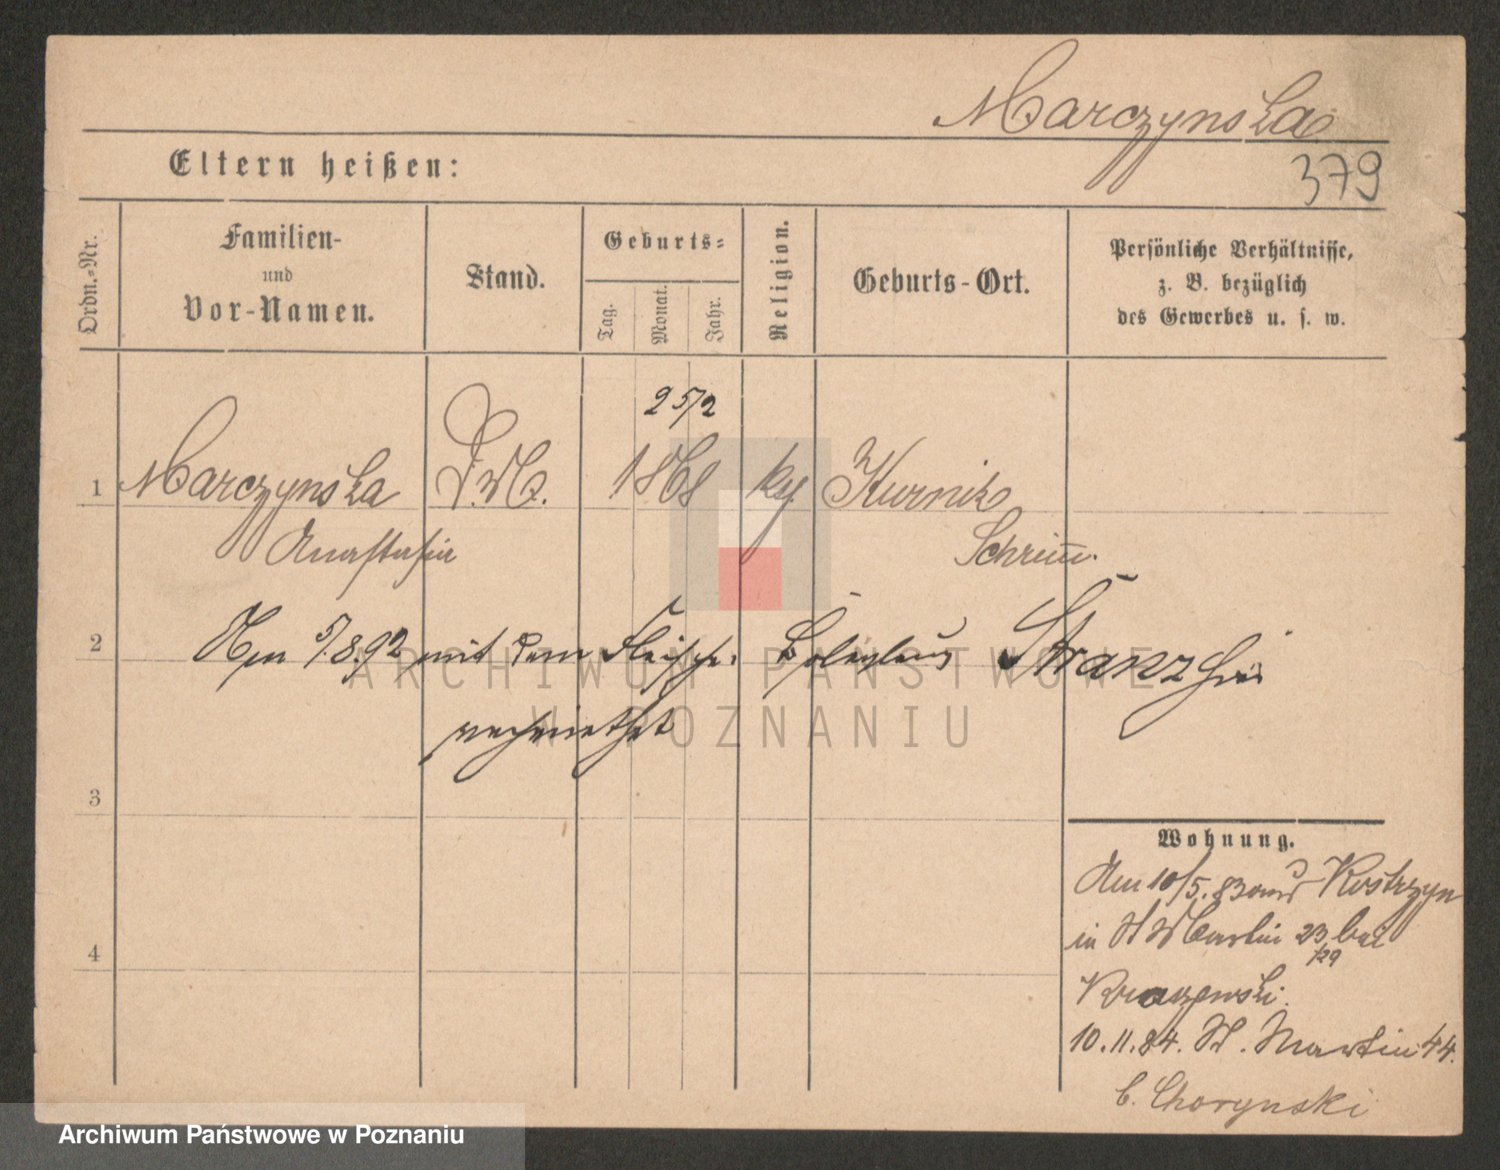 Marczynska
379
Eltern heißen:
Ordn.-Nr.
Familien-
und
Vor-Namen.
Stand.
Geburts-
Tag.
Monat.
Jahr.
Religion.
Geburts-Ort.
Persönliche Verhältnisse,
z. B. bezüglich
des Gewerbes u. s. w.
25/2
1 Marczynska D.M. 1868 Kurnik
Anastasia Schrim̅.
2 Am 5/8.92 mit dem Fleischer Boleslaus
verheirathet
3
Wohnung.
Am 10/5.83 aus Kostrzyn
in St Martin 23 bei
/29
4
10.11.84. St. Martin 44.
b. Chorynski
ARCHIWUM PAŃSTWOWE
W POZNANIU
Archiwum Państwowe w Poznaniu